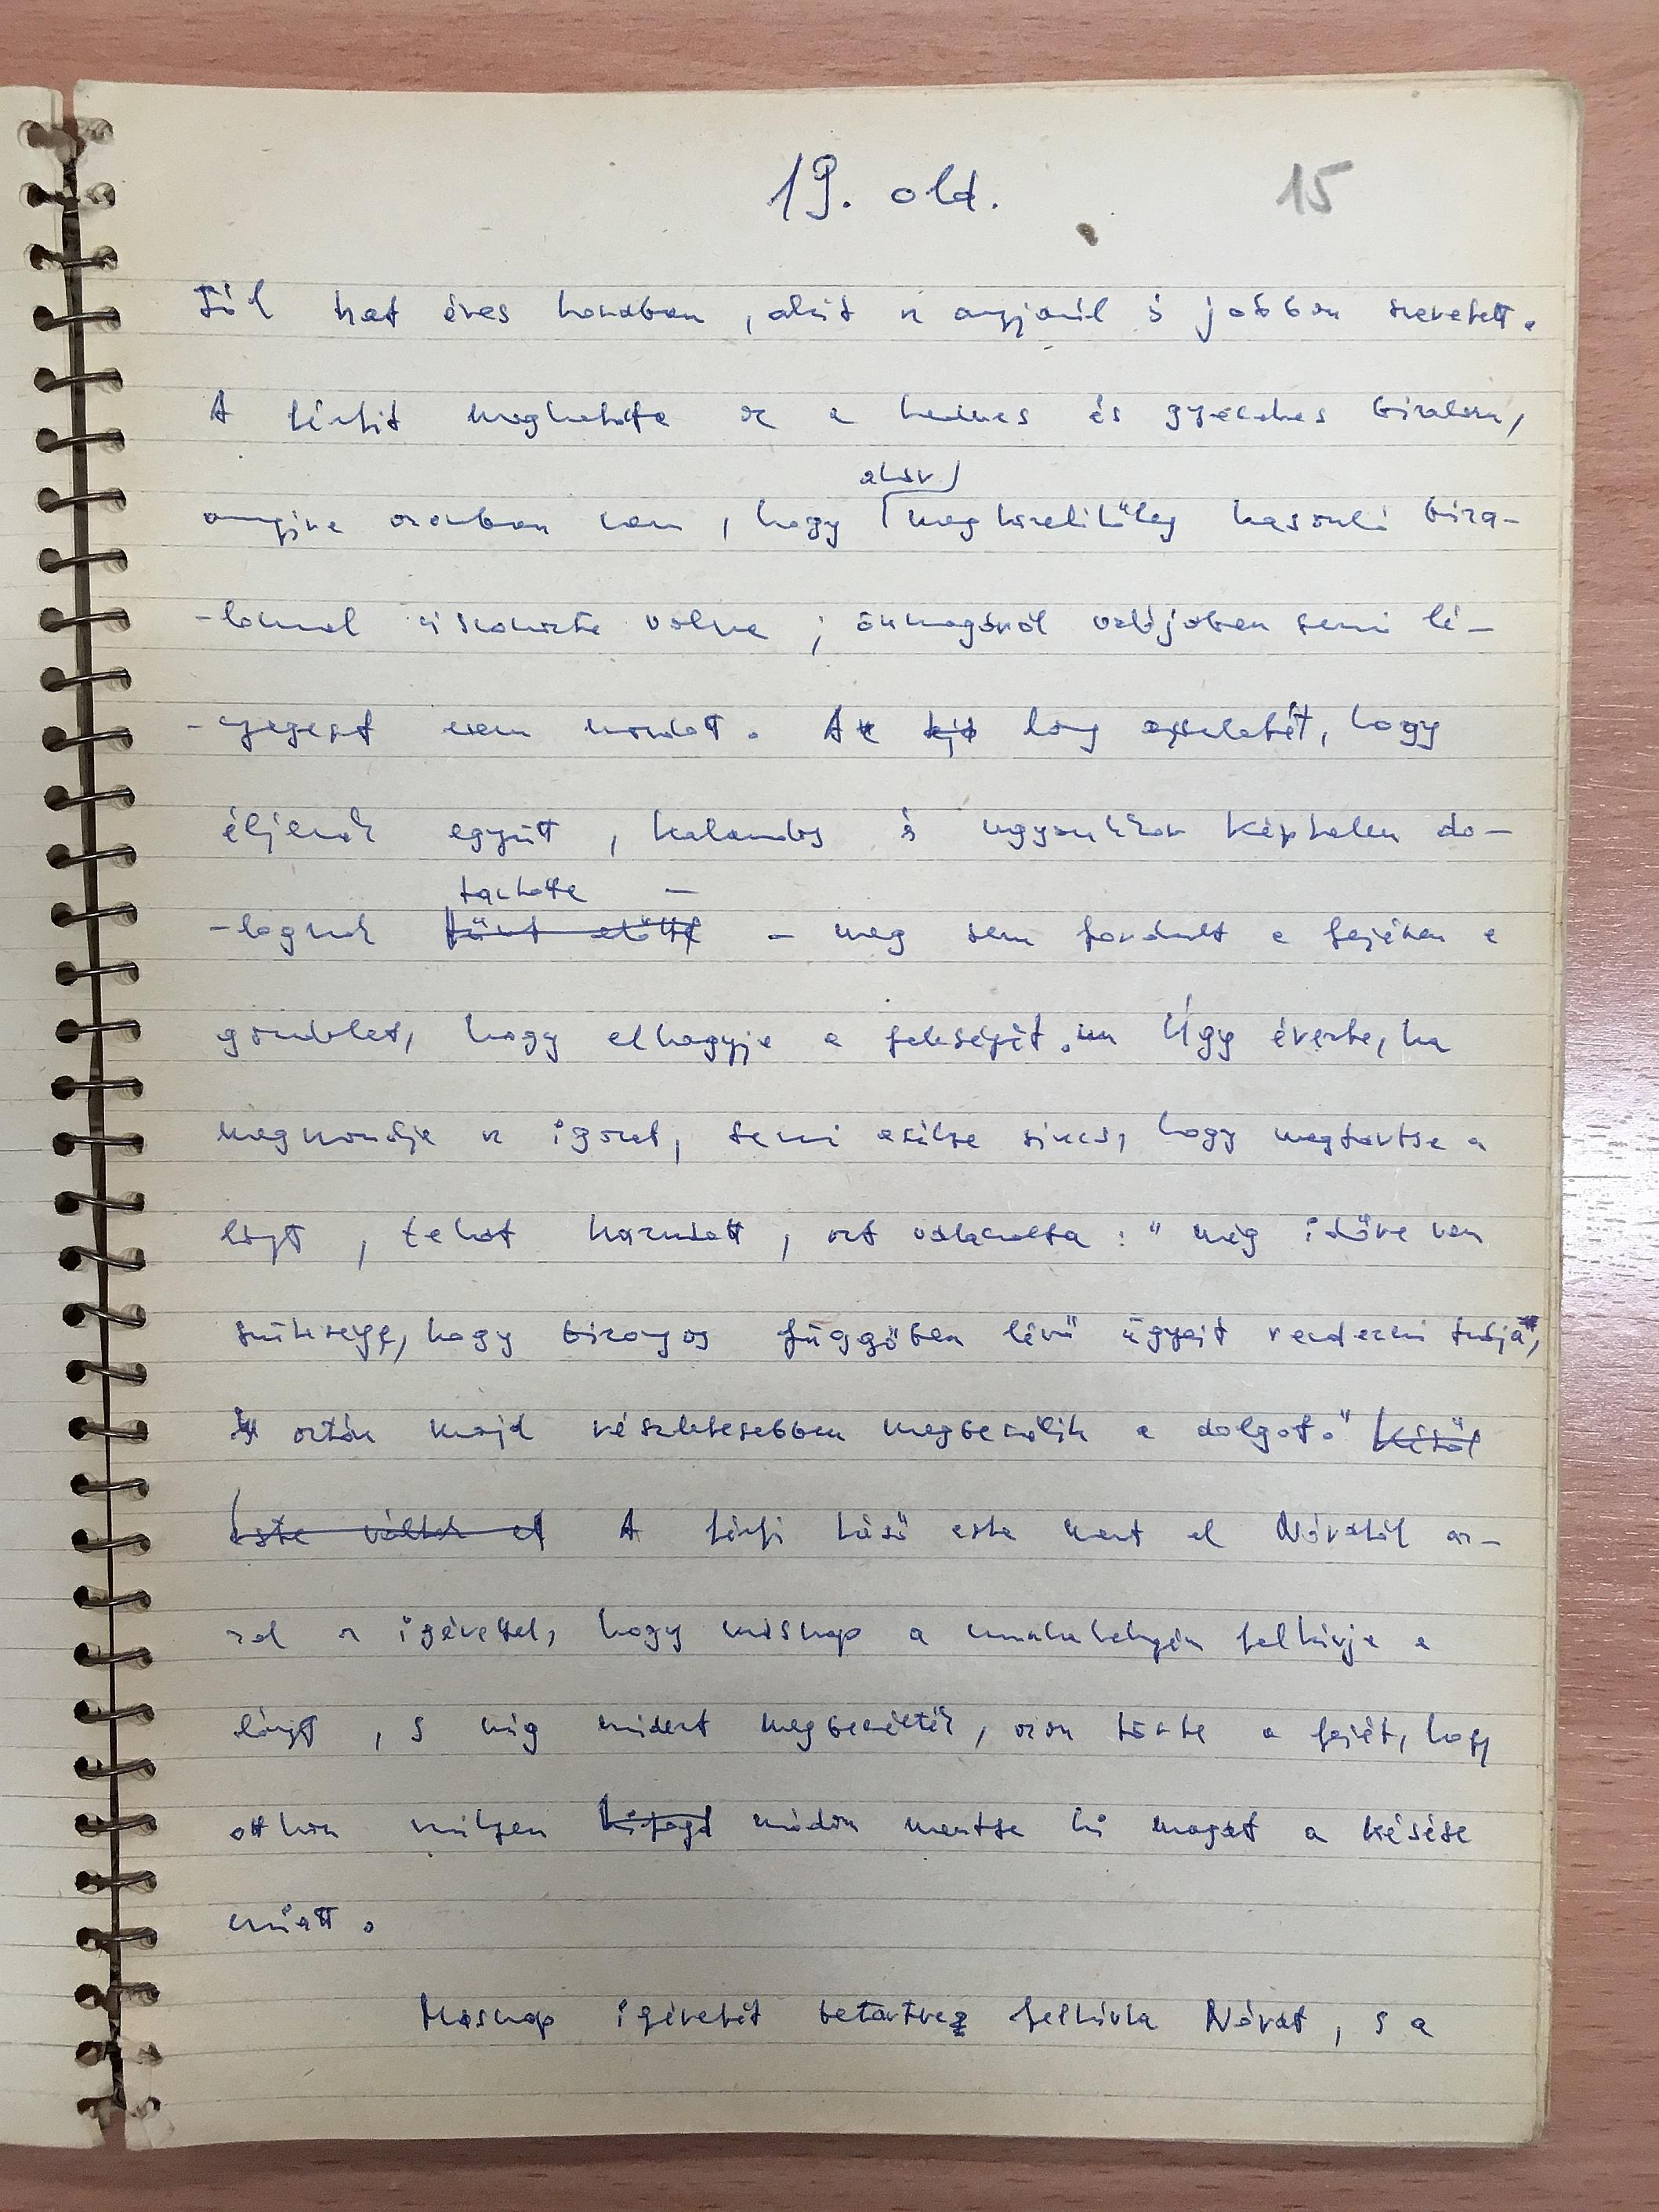 19. old. 15
hat éves korában, akit az anyjánál is jobban szeretett.
A férfit meghatotta ez a kedves és gyermekes bizalom,
annyira azonban nem, hogy akár megközelítőleg hasonló biza-
-lommal viszonozta volna; önmagáról valójában semmi lé-
-nyegest nem mondott. A lány ajánlatát, hogy
éljenek együtt, kalandos és ugyanakkor képtelen do-
-lognak tartotta - meg sem fordult a fejében a
gondolat, hogy elhagyja a feleségét. Úgy érezte, ha
megmondja az igazat, semmi esélye sincs, hogy megtartsa a
lányt, tehát hazudott, azt válaszolta: "még időre van
szüksége, hogy bizonyos függőben lévő ügyeit rendezni tudja,
aztán majd részletesebben megbeszélik a dolgot." Késő
este váltak el A férfi késő este ment el Nórától az-
-zal az ígérettel, hogy másnap a munkahelyén felhívja a
lányt, s míg mindezt megbeszélték, azon törte a fejét, hogy
otthon milyen kifogá módon mentse ki magát a késése
miatt.
Másnap ígéretét betartva felhívta Nórát, s a